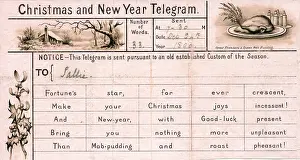 Christmas and New Year Telegram.
Number of Words.
33.
Sent
At
Dec 24th
NOTICE—This Telegram is sent pursuant to an old established Custom of the Season.
TO
Fortune's star, far ever crescent,
Make your Christmas joys incessant!
And New-year, with Good-luck present
Bring you nothing more unpleasant
Than Mob-pudding and roast pheasant!